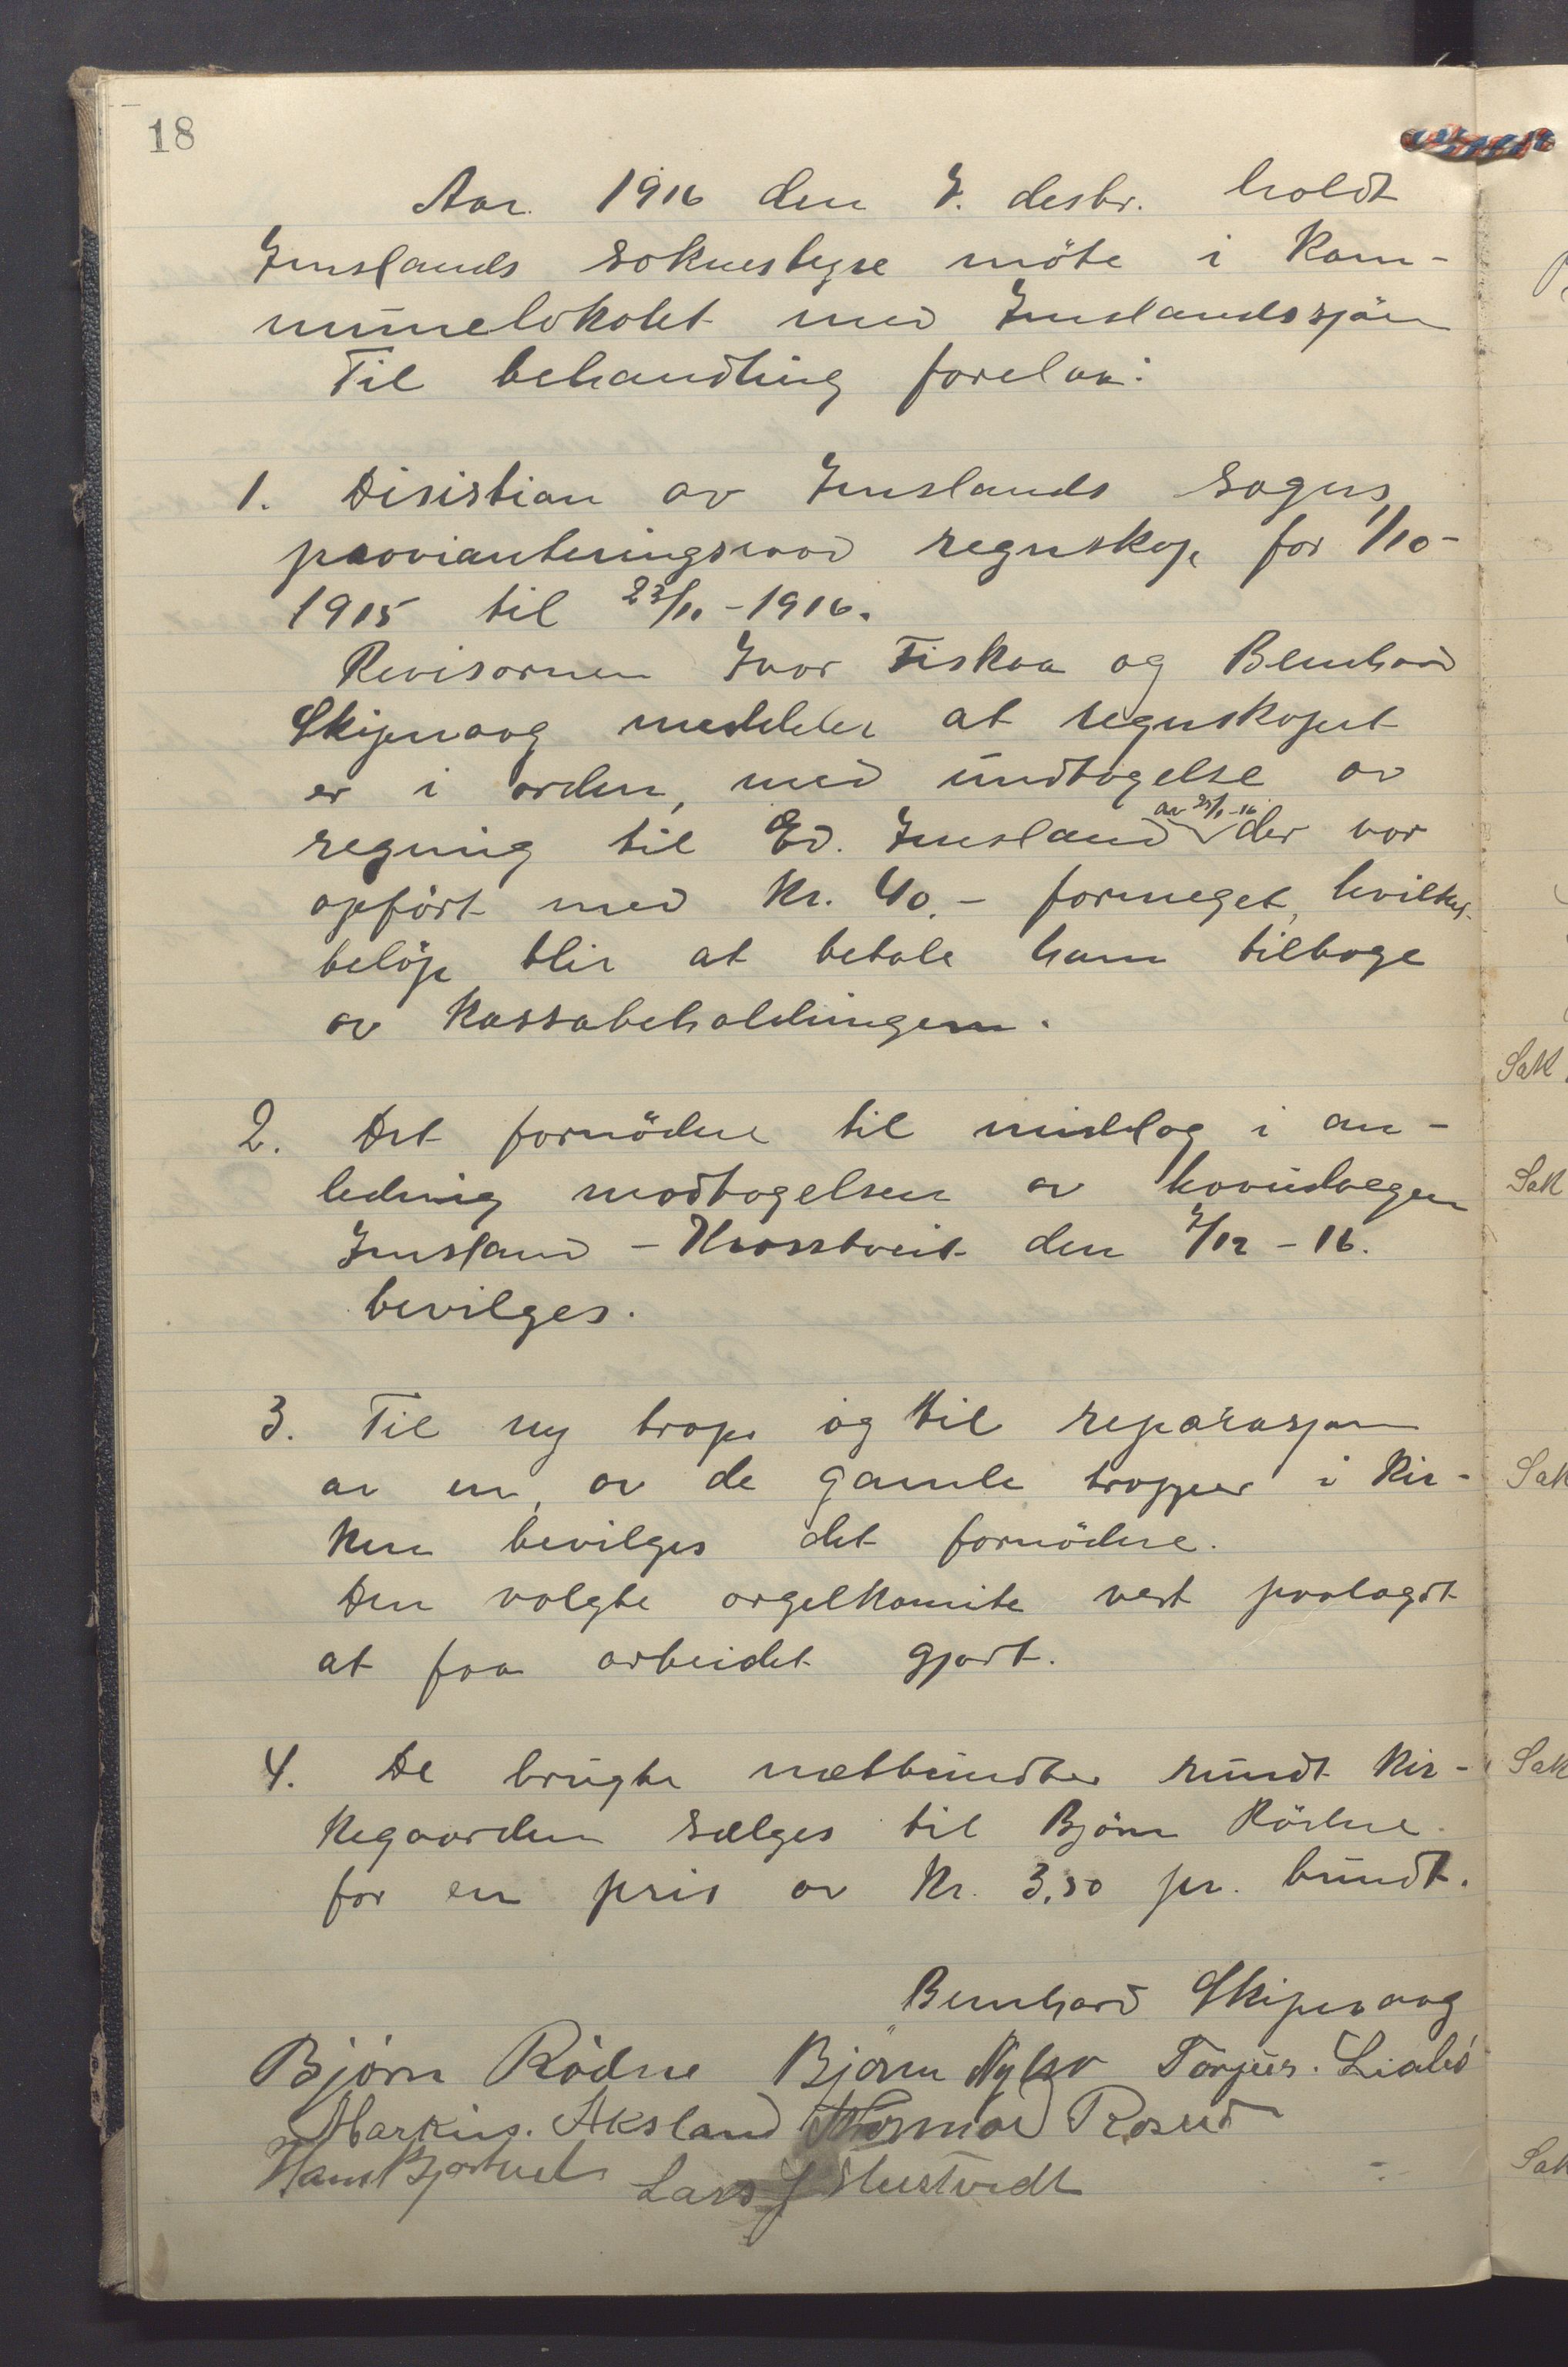 18
Aar 1916 den 7. desbr. holdt
Imslands soknestyre möte i Kom-
munelokalet ved Imslandssjöen
Til behandling forelaa:
1. Disistion av Imslands sogns
provianteringsraad regnskap for 1/10-
1915 til 23/11-1916.
Revisornen Ivar Fiskaa og Bernhard
Skipevaag meddeler at regnskapet
er i orden, med undtagelse av
regning til Ed. Imsland av 25/1-16 der var
opfört med Kr. 40.- formeget, hvilket
belöp blir at betale ham tilbage
av Kassabeholdningen.
2. Det fornödne til middag i an-
ledning modtagelsen av hovudvegen
Imsland - Krosstveit den 7/12-16.
bevilges.
3. Til ny trap og til reparasjon
av en av de gamle trapper i Kir-
ken bevilges det fornödne.
Den valgte orgelkomite vert paalagdt
at faa arbeidet gjort.
4. De brugte netbundter rundt Kir-
Kegaarden sælges til Björn Rödne
for en pris av Kr. 3,50 pr. bundt.
Bernhard Skipevaag
Björn Rödne Björn Torjus. Lialid
Markus. Aksland Thormod Rosud
Hans Lars J Hustvedt
Sak
Sak
Sak
Sak
Sak